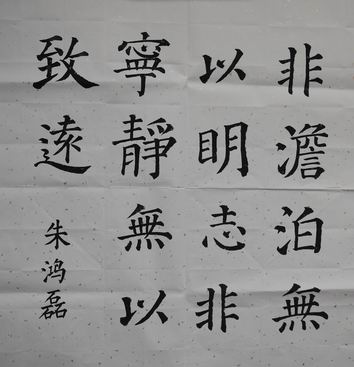 非澹泊無
以明志非
寧靜無以
致遠
朱鸿磊